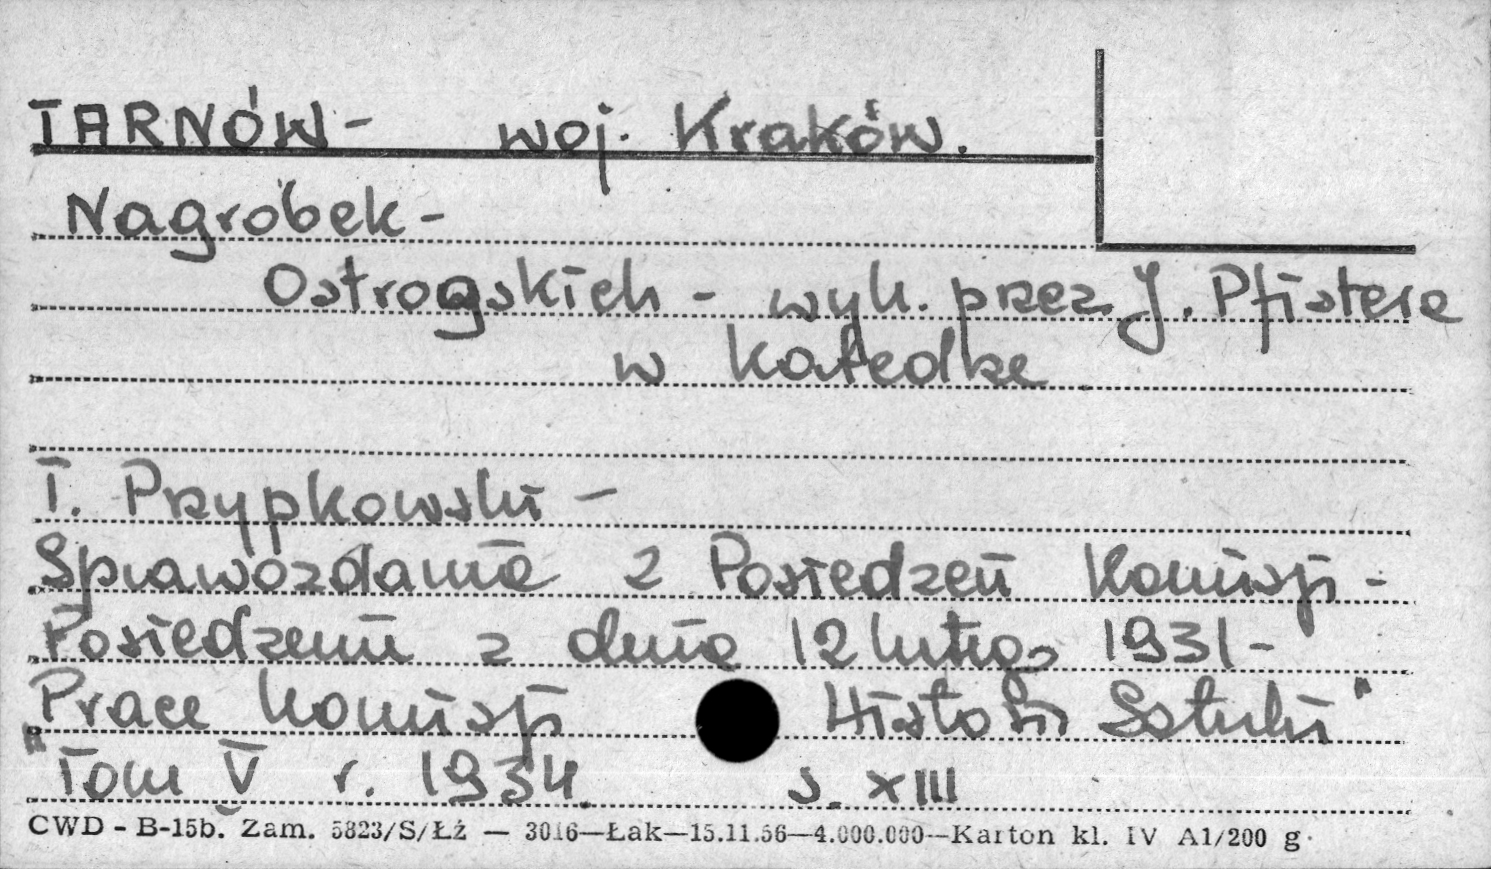 TARNÓW - woj. Kraków.
Nagrobek -
Ostrogskich - wyk. przez J. Pfistera
w Katedrze
T. Przypkowski -
Sprawozdania z Posiedzeń Komisji -
Posiedzenie z dnia 12 lutego 1931 -
"Prace Komisji Historii Sztuki"
Tom V r. 1934. s. XIII
CWD - B-15b. Zam. 5823/S/Łż — 3016—Łak—15.11.56—4.000.000—Karton kl. IV A1/200 g